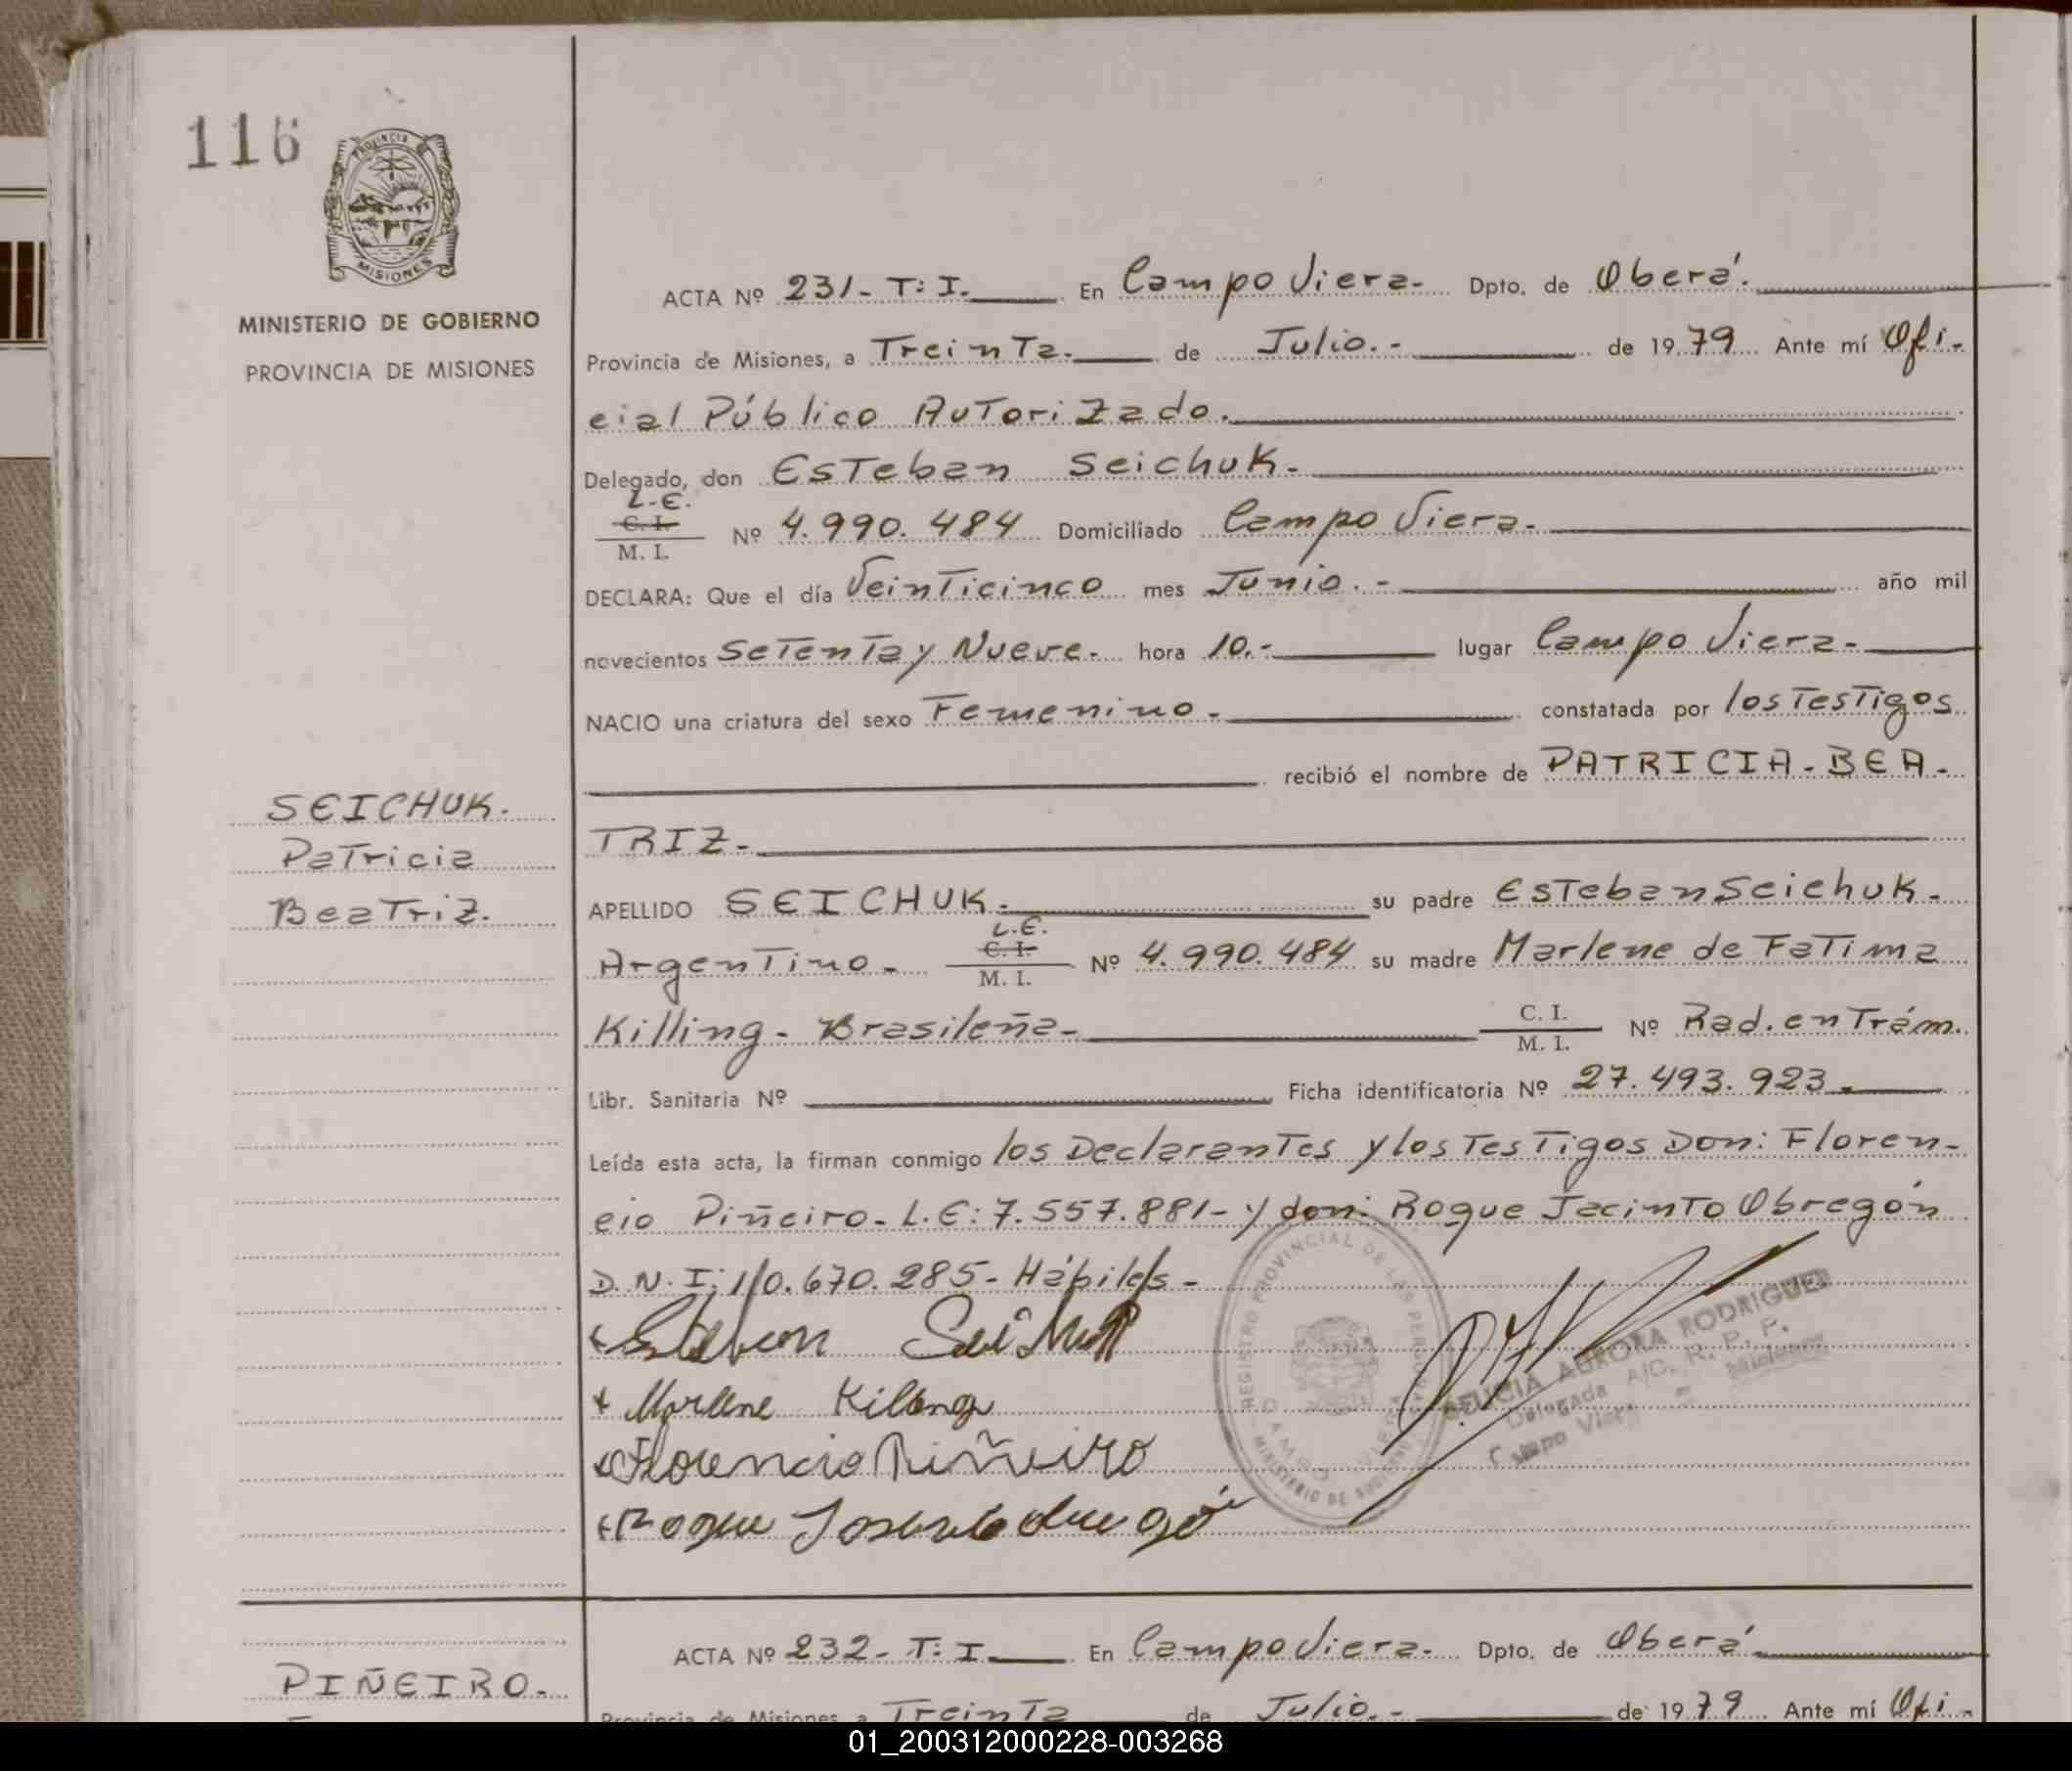 116
PROVINCIA
MISIONES
MINISTERIO DE GOBIERNO
PROVINCIA DE MISIONES
ACTA Nº 231- T: I. En Campo Viera- Dpto. de Oberá.
Provincia de Misiones, a Treinta. de Julio.- de 1979 Ante mí Ofi-
cial Público Autorizado.
Delegado, don Esteban Seichuk-
L.E.
C. I.
M. I. Nº 4.990.484 Domiciliado Campo Viera-
DECLARA: Que el día Veinticinco mes Junio.- año mil
novecientos Setenta y Nueve- hora 10.- lugar Campo Viera-
NACIO una criatura del sexo Femenino- constatada por los Testigos
recibió el nombre de PATRICIA-BEA-
TRIZ-
SEICHUK.
Patricia
Beatriz.
APELLIDO SEICHUK. su padre Esteban Seichuk-
L.E.
Argentino- C. I.
M. I. Nº 4.990.484 su madre Marlene de Fatima
Killing- Brasileña- C. I.
M. I. Nº Rad. en Trám.
Libr. Sanitaria Nº Ficha identificatoria Nº 27.493.923.
Leída esta acta, la firman conmigo los Declarantes y los Testigos Don: Floren-
cio Piñeiro- L.E: 7.557.881- y don: Roque Jacinto Obregón
D.N.I: 10.670.285- Hábiles-
Esteban
Marlene Killing
Florencio Piñeiro
Roque
REGISTRO PROVINCIAL DE LAS PERSONAS
CAMPO VIERA
MINISTERIO DE
AURORA RODRIGUEZ
Delegada A/C. R. P. P.
Campo Viera Misiones
ACTA Nº 232- T: I En Campo Viera- Dpto. de Oberá
PIÑEIRO-
Provincia de Misiones a Treinta de Julio.- de 1979 Ante mí Ofi-
01_200312000228-003268